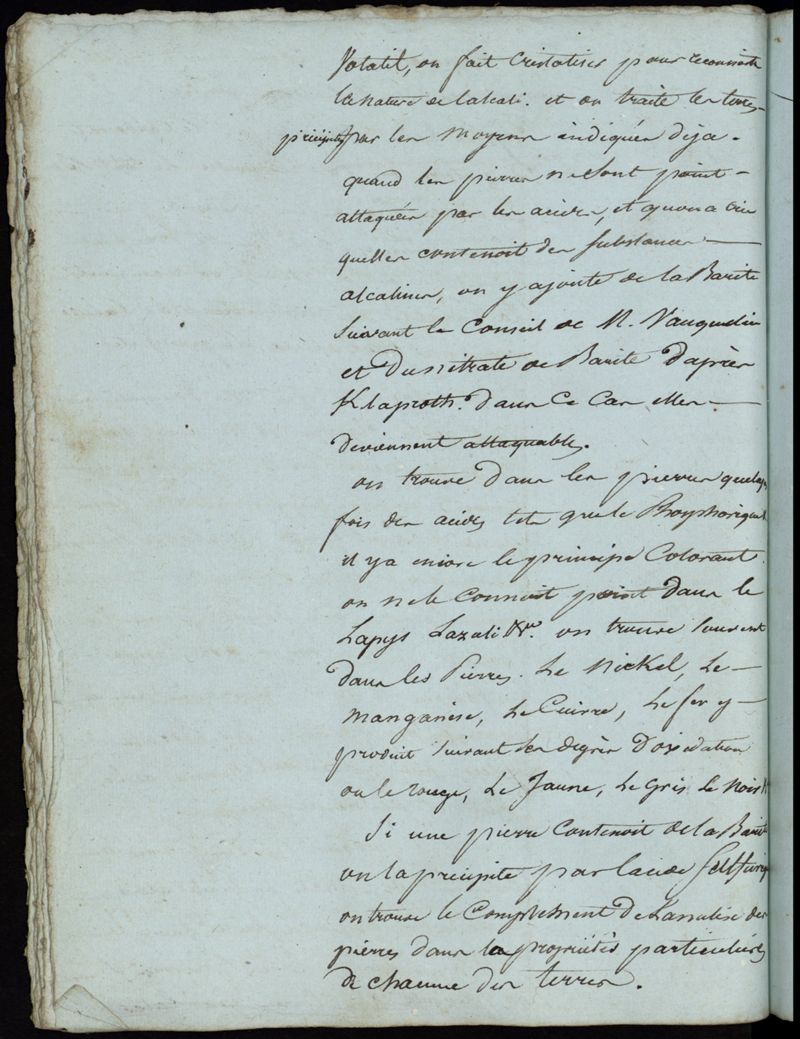 Volatil, on fait Cristaliser pour reconnoitre
la nature de l'alcali. et on traite les terres
précipités par les moyens indiqués deja.
quand les pierres ne sont point
attaquées par les acides, et quon a vu
quelles contenoit des substances
alcalines, on y ajoute de la Barite
suivant le Conseil de M. Vauquelin
et Du nitrate de Barite D'après
Klaproth. dans ce Cas elles
deviennent attaquables.
on trouve Dans les pierres quelque
fois des acides tels que le Phosphorique.
il y a encore le principe Colorant.
on ne le Connoit point dans le
Lapys Lazuli &c. on trouve souvent
dans les Pierres. Le Nickel, Le
manganèse, Le Cuivre, Le fer y
produit suivant ses degrés D'oxidation
ou le rouge, Le Jaune, Le Gris Le Noir &
Si une pierre Contenoit de la Barite
on la précipite par lacide sulfuriq
on trouve le Complement De Lanalise des
pierres dans les propriétés particulières
de chacune des terres.